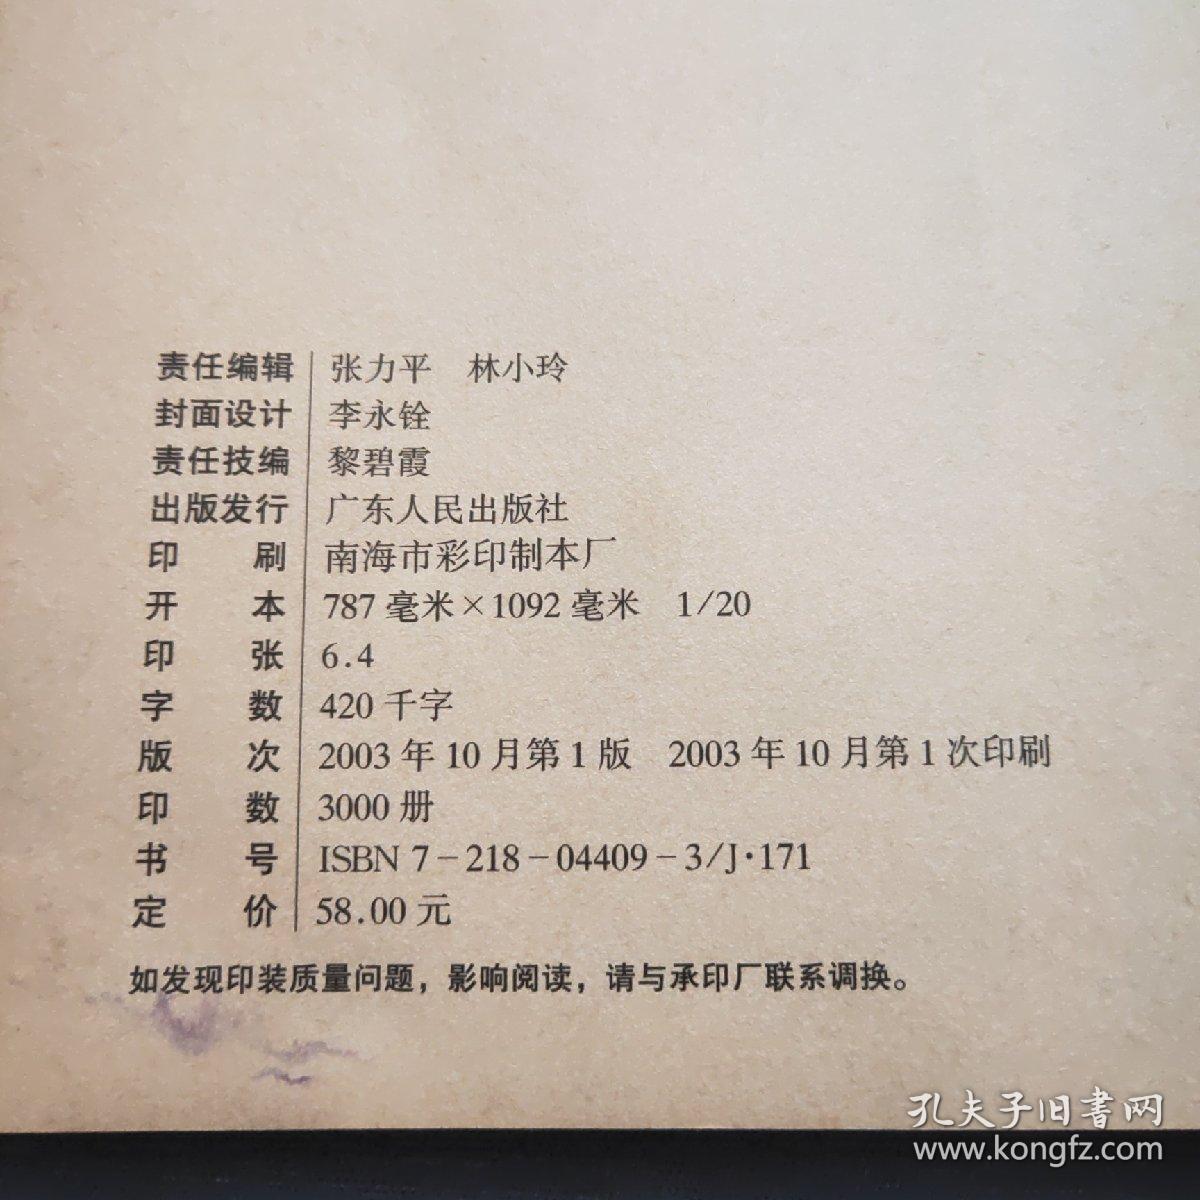 责任编辑 张力平 林小玲
封面设计 李永铨
责任技编 黎碧霞
出版发行 广东人民出版社
印 刷 南海市彩印制本厂
开 本 787毫米×1092毫米 1/20
印 张 6.4
字 数 420千字
版 次 2003年10月第1版 2003年10月第1次印刷
印 数 3000册
书 号 ISBN 7-218-04409-3/J·171
定 价 58.00元
如发现印装质量问题，影响阅读，请与承印厂联系调换。
孔夫子旧書网
www.kongfz.com